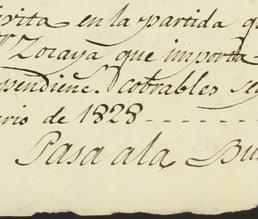 crita en la partida qu
Zozaya que importa
spendiene. cobrables se
ario de 1828
Pasa ala Bu